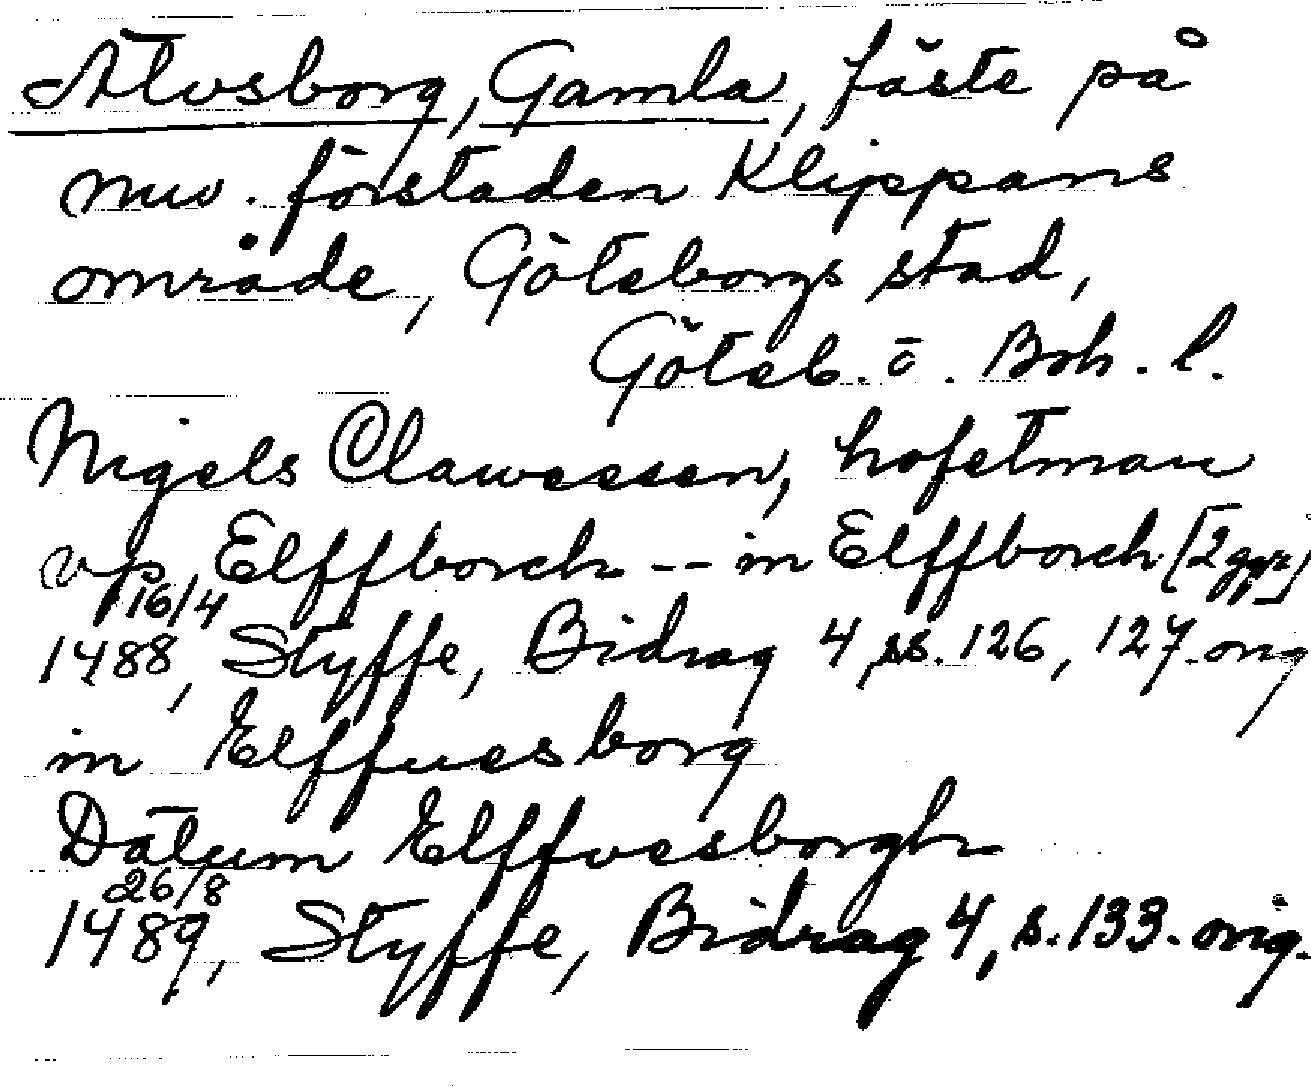 Älvsborg, Gamla, fäste på
nuv. förstaden Klippans
område, Göteborgs stad,
Göteb. o. Boh. l.
Nigels Clawessen, hofetman
vp Elffborch -- in Elffborch (2 ggr)
16/4
1488, Styffe, Bidrag 4, ss. 126, 127. orig
in Elffuesborg
Datum Elffvesborgh
26/8
1489, Styffe, Bidrag 4, s. 133. orig.